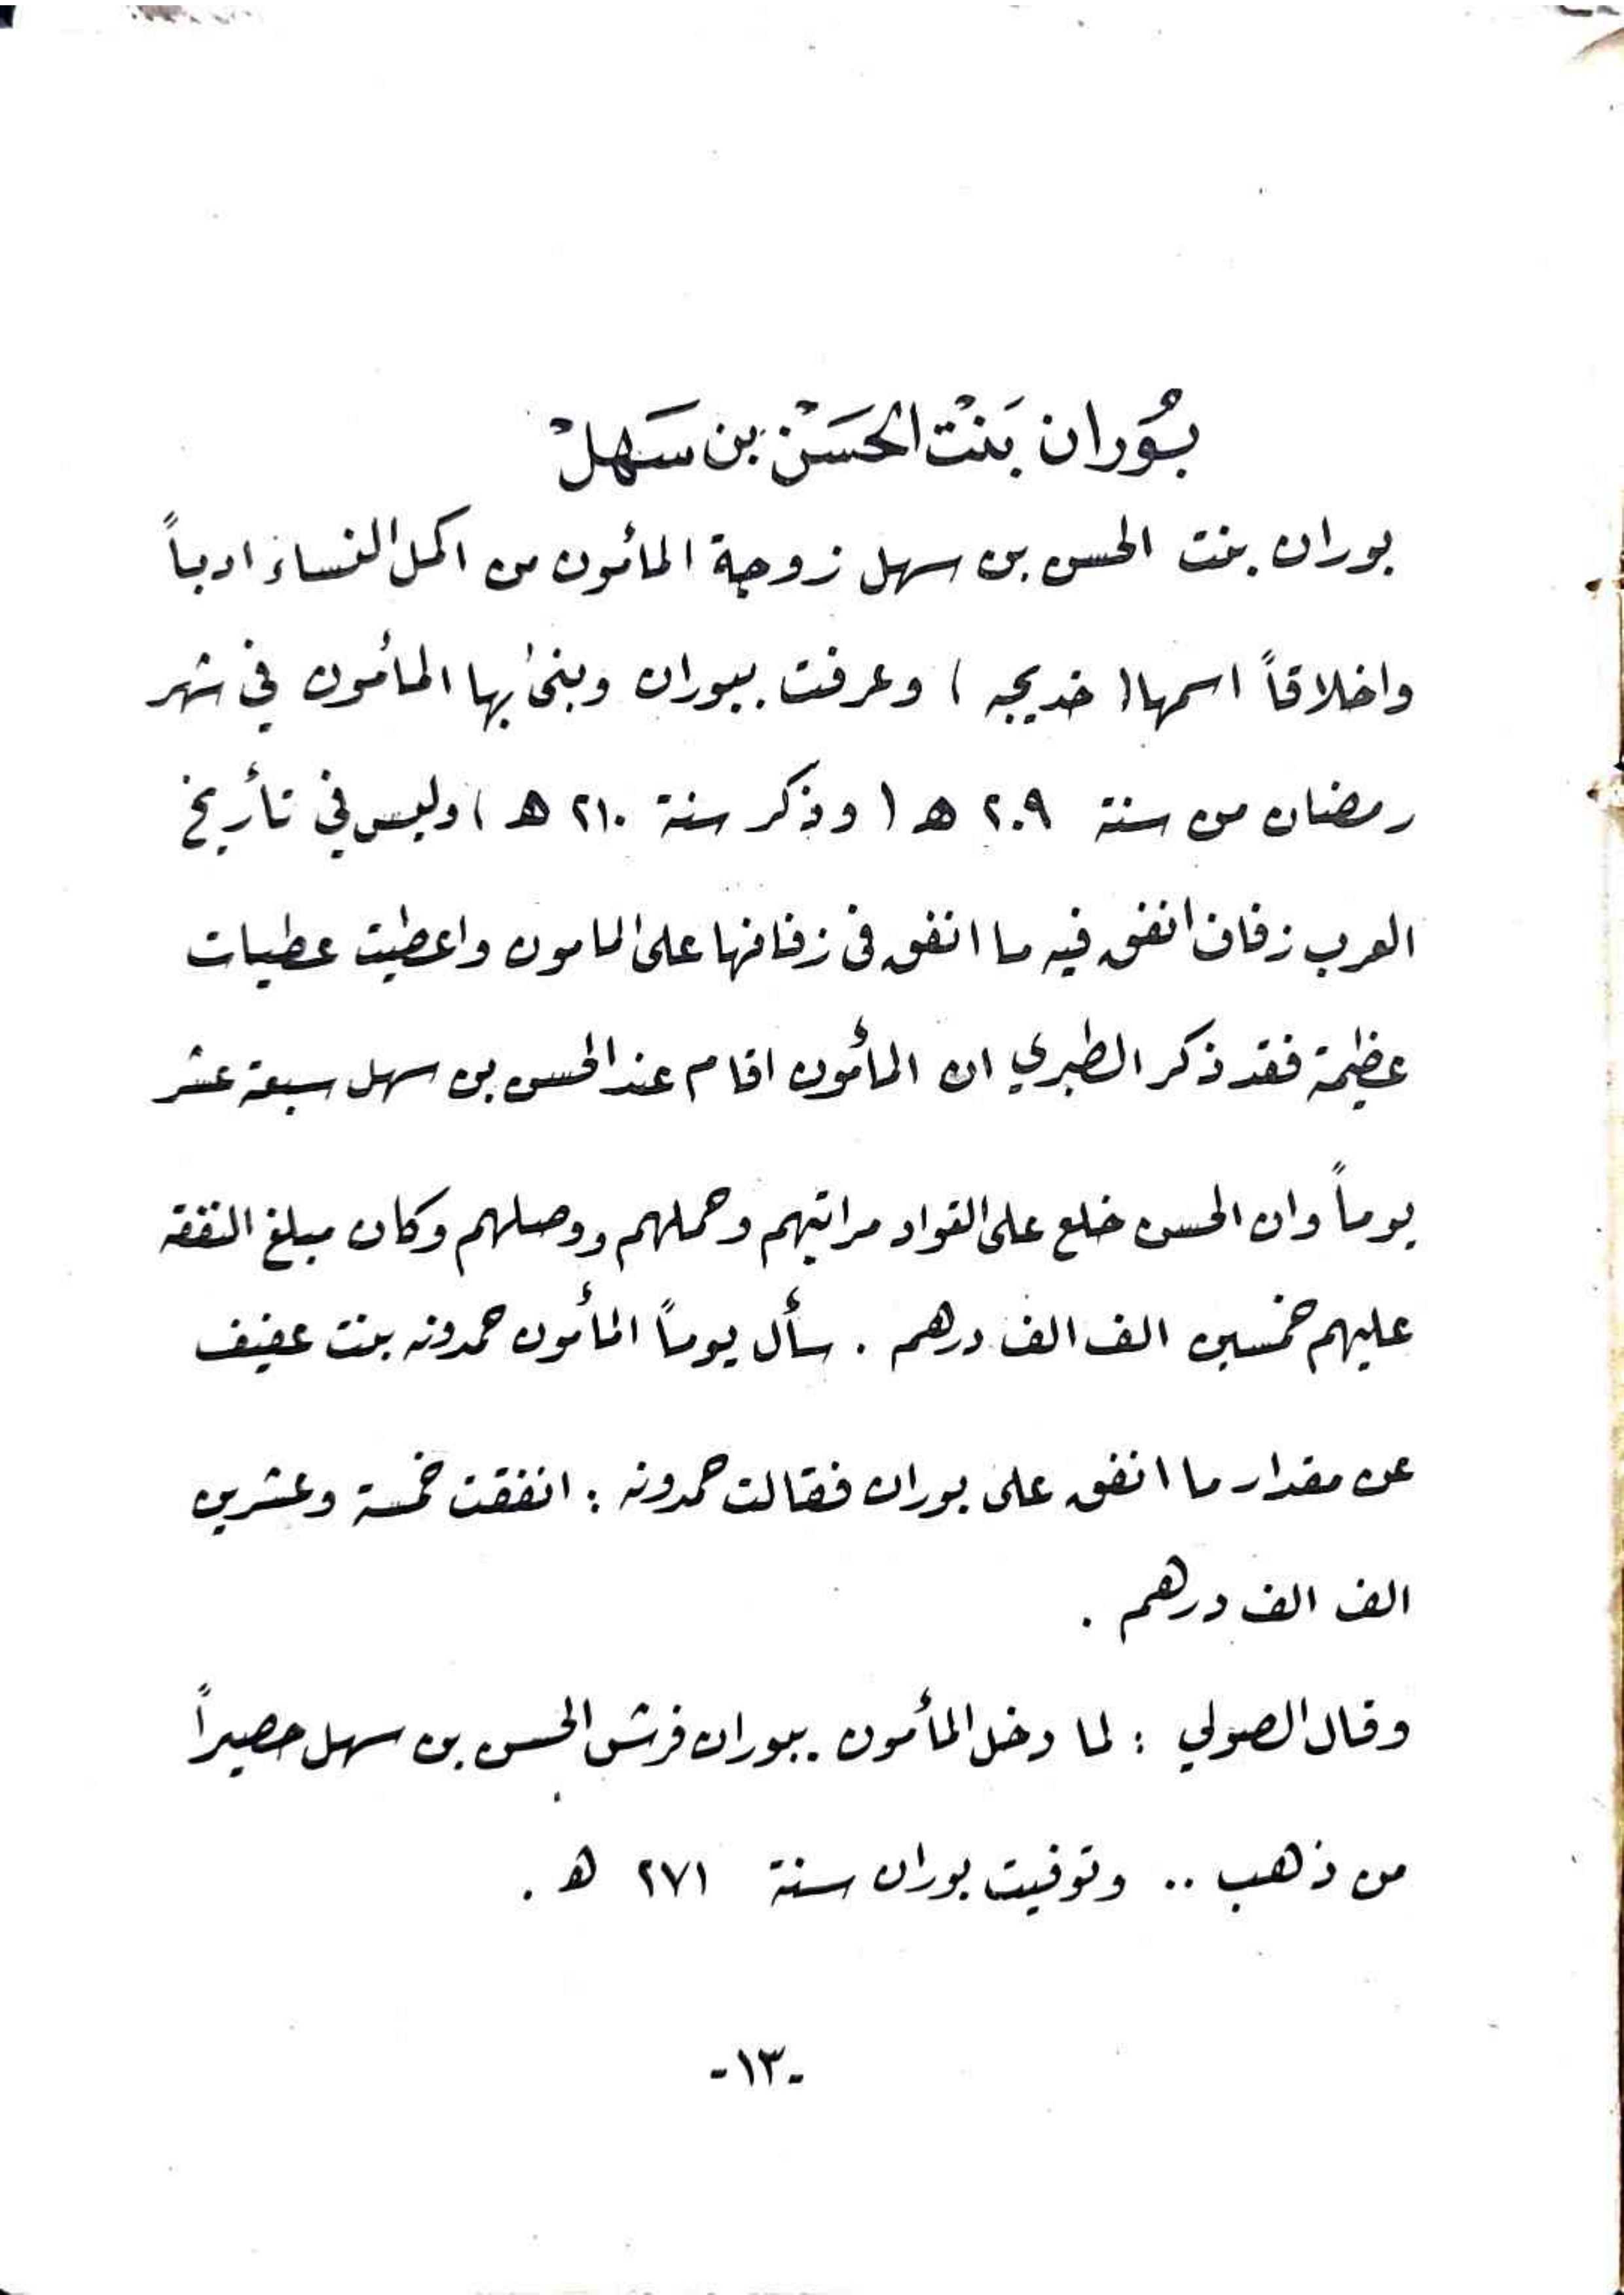 بُوران بَنْت الحَسَنْ بن سَهلْ
بوران بنت الحسن بن سهل زوجة المأمون من اكمل النساء ادباً
واخلاقاً اسمها ( خديجه ) وعرفت ببوران وبنى بها المأمون في شهر
رمضان من سنة ٢٠٩ هـ ( وذكر سنة ٢١٠ هـ ) وليس في تأريخ
العرب زفاف انفق فيه ما انفق في زفافها على المامون واعطيت عطيات
عظيمة فقد ذكر الطبري ان المأمون اقام عند الحسن بن سهل سبعة عشر
يوماً وان الحسن خلع على القواد مراتبهم وحملهم ووصلهم وكان مبلغ النفقه
عليهم خمسين الف الف درهم . سأل يوماً المأمون حمدونه بنت عفيف
عن مقدار ما انفق على بوران فقالت حمدونه : انفقت خمسة وعشرين
الف الف درهم .
وقال الصولي : لما دخل المأمون ببوران فرش الحسن بن سهل حصيراً
من ذهب .. وتوفيت بوران سنة ٢٧١ هـ .
-١٣-